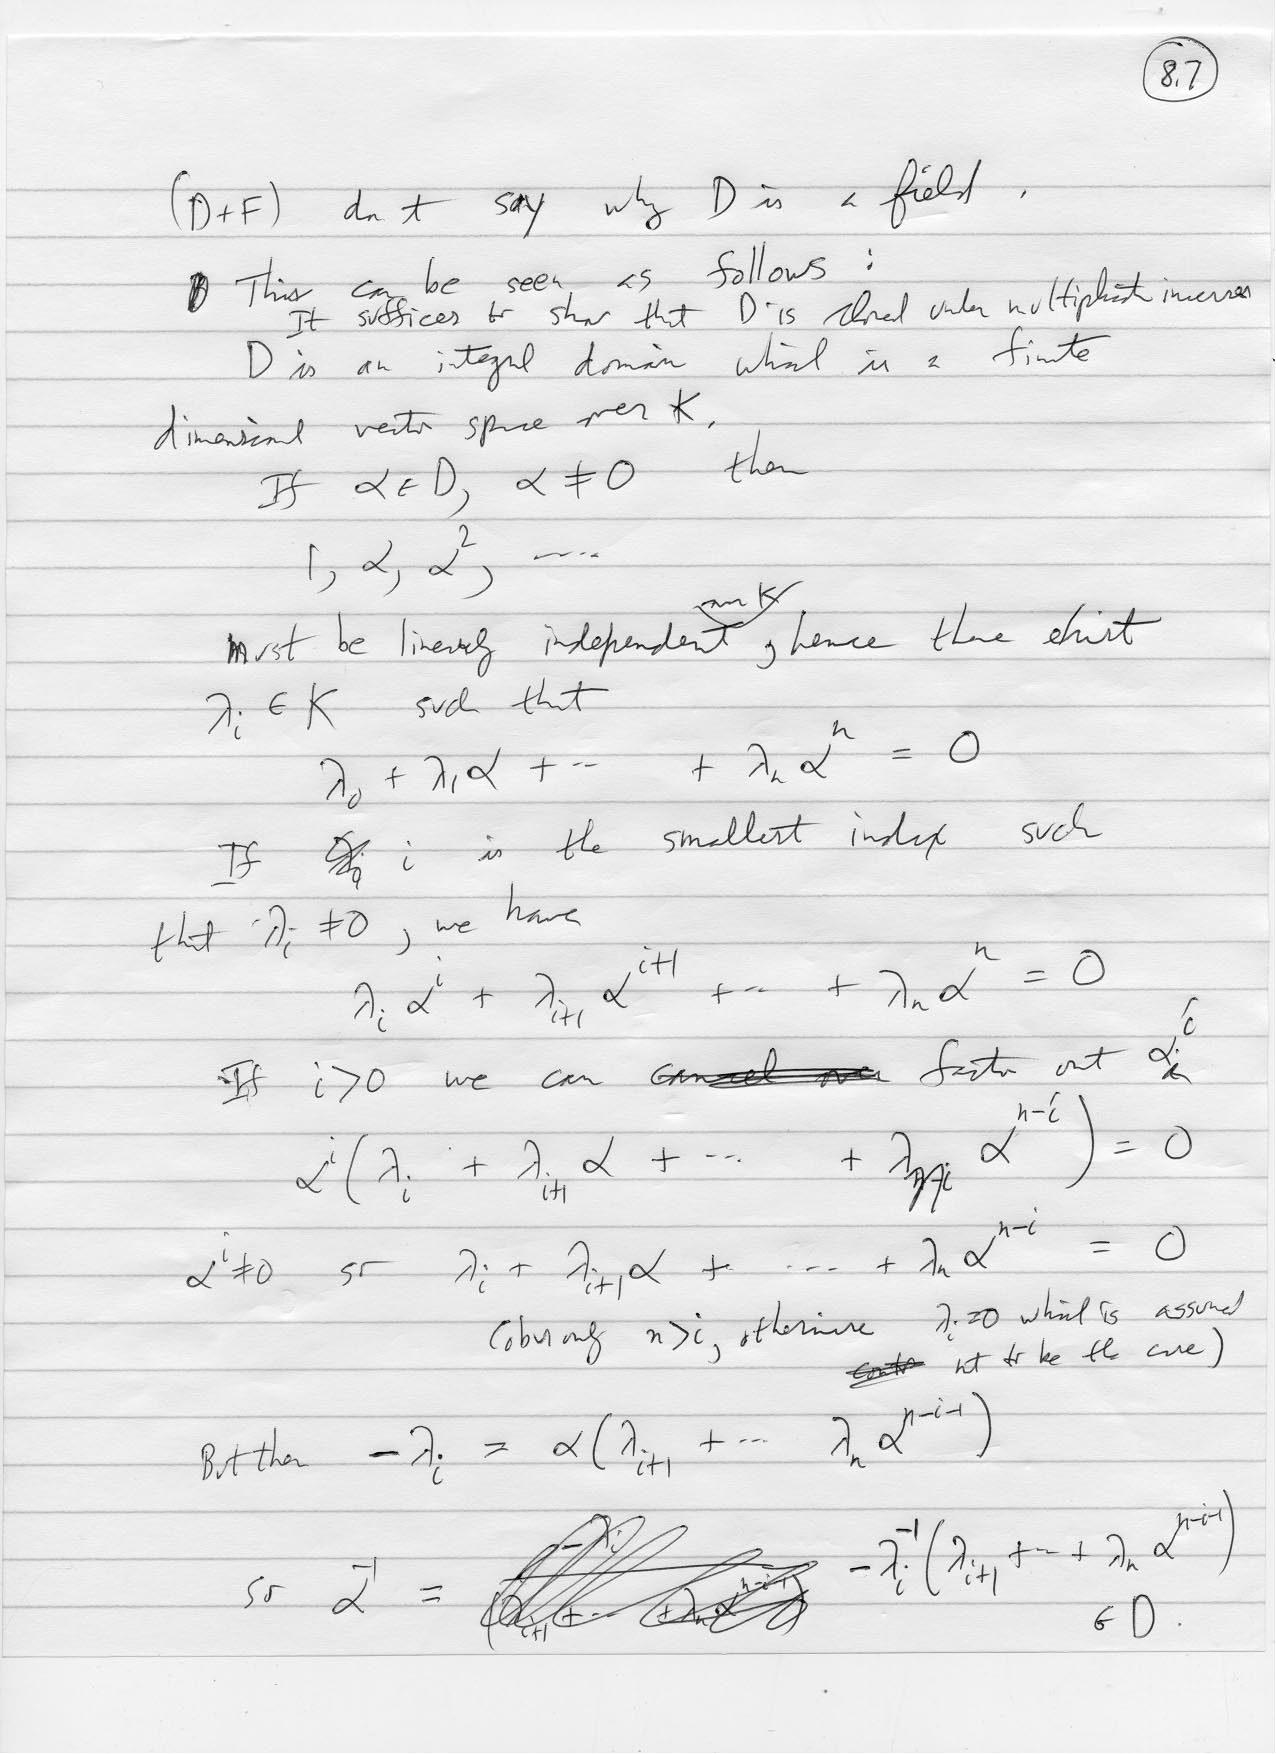 8.7
(D+F) don't say why D is a field.
This can be seen as follows:
It suffices to show that D is closed under multiplicative inverses
D is an integral domain which is a finite
dimensional vector space over K.
If α ∈ D, α ≠ 0 then
1, α, α², ....
over K
must be linearly independent, hence there exist
λ_i ∈ K such that
λ_0 + λ_1 α + ... + λ_n α^n = 0
If i is the smallest index such
that λ_i ≠ 0, we have
λ_i α^i + λ_{i+1} α^{i+1} + ... + λ_n α^n = 0
If i > 0 we can factor out α^i
α^i (λ_i + λ_{i+1} α + ... + λ_n α^{n-i}) = 0
α^i ≠ 0 so λ_i + λ_{i+1} α + .... + λ_n α^{n-i} = 0
(obviously n > i, otherwise λ_i = 0 which is assumed
not to be the case)
But then -λ_i = α(λ_{i+1} + ... λ_n α^{n-i-1})
so α^{-1} = -λ_i^{-1} (λ_{i+1} + ... + λ_n α^{n-i-1})
∈ D.